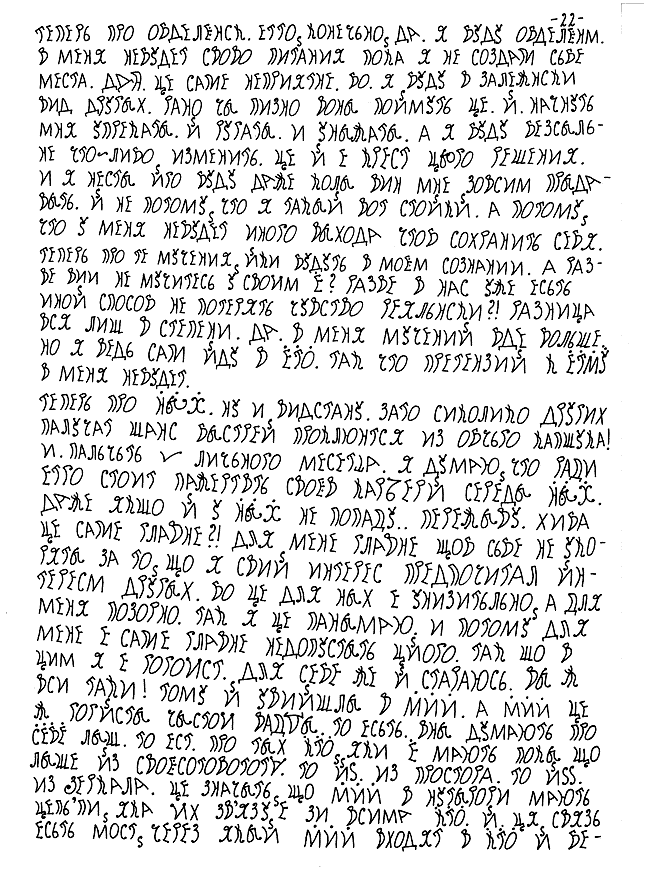 -22-
ТЕПЕРЬ ПРО ОВДЕЛЕНСИ. ЕТТО, КОНЕЧЬНО, ДА. Я БУДУ ОВДЕЛЕНИМ.
В МЕНЯ НЕБУДЕТ СВОВО ПИТАНИЯ ПОКА Я НЕ СОЗДАТИ СЬБЕ
МЕСТА. ЦЕ САМЕ НЕПРИЯТНЕ. БО. Я БУДУ В ЗАЛЕЖНСКИ
ВИД ДРУГЫХ. РАНО ЧЫ ПИЗНО ВОНЫ ПОЙМУТЬ ЦЕ. Й. НАЧНУТЬ
МНЯ УПРЕКАТЫ. Й РУГАТЫ. И УНЫЖАТЫ. А Я БУДУ БЕЗСЫЛЬ-
НЕ ЧТО-ЛИБО, ИЗМЕНИТЬ. ЦЕ Й Е КРЕСТ ЦЬОГО РЕШЕНИЯ.
И Я НЕСТЫ ЙГО БУДУ ДАЖЕ КОЛЫ ВИН МНЕ ЗОВСИМ ПРЫДА-
ВЫТЬ. Й НЕ ПОТОМУ, ЧТО Я ТАКЫЙ ВОТ СТОЙКИЙ. А ПОТОМУ,
ЧТО У МЕНЯ НЕБУДЕТ ИНОГО ВЫХОДА ЧТОБ СОХРАНИТЬ СЕБЯ.
ТЕПЕРЬ ПРО ТЕ МУЧЕНИЯ, ЙКИ БУДУТЬ В МОЕМ СОЗНАНИИ. А РАЗ-
ВЕ ВИИ НЕ МУЧИТЕСЬ У СВОИМ Ё? РАЗВЕ В НАС УЖЕ ЕСЬТЬ
ИНОЙ СПОСОБ НЕ ПОТЕРЯТЬ ЧУВСТВО РЕЯЛЬНСКИ?! РАЗНИЦА
ВСЯ ЛИШ В СТЕПЕНИ. ДА. В МЕНЯ МУЧЕНИЙ БДЕ БОЛЬШЕ.
НО Я ВЕДЬ САМ ЙДУ В ЁТО. ТАК ЧТО ПРЕТЕНЗИЙ К ЁТМУ
В МЕНЯ НЕБУДЕТ.
ТЕПЕРЬ ПРО НЫХ. НУ И ВИДСТАНУ. ЗАТО СИКОЛИКО ДРУГИХ
ПАЛУЧАТ ШАНС БЫСТРЕЙ ПРОКЛЮНТСЯ ИЗ ОБЧЬГО КАПШУКА!
И. ПАЛЬЧЬТЬ ЛИЧЬНОГО МЕСЕТЦА. Я ДУМАЮ, ЧТО РАДИ
ЕТГО СТОИТ ПАЖЕРТВТЬ СВОЕВ КАРЬЕРЙ СЕРЕДЫ НЫХ.
ДАЖЕ ЯКШО Й У НЫХ НЕ ПОПАДУ.. ПЕРЕЖЫВУ. ХИБА
ЦЕ САМЕ ГЛАВНЕ?! ДЛЯ МЕНЕ ГЛАВНЕ ЩОБ СЬБЕ НЕ УКО-
РЯТЫ ЗА ТО, ЩО Я СВИЙ ИНТЕРЕС ПРЕДПОЧИТАЛ ЙН-
ТЕРЕСМ ДРУГЫХ. БО ЦЕ ДЛЯ НЫХ Е УНИЗИТЬЛЬНО, А ДЛЯ
МЕНЯ ПОЗОРНО. ТАК Я ЦЕ ПАНЫМАЮ, И ПОТОМУ ДЛЯ
МЕНЕ Е САМЕ ГЛАВНЕ НЕДОПУСТЫТЬ ЦЙОГО. ТАК ШО В
ЦИМ Я Е ГОГОИСТ. ДЛЯ СЕБЕ ЖЕ Й СТАРАЮСЬ. ВЫ Ж
ВСИ ТАКИ! ТОМУ Й УВИЙШЛЫ В МЙЙ. А МЙЙ ЦЕ
Ж ГОГИСТЫ ЧЫСТОЙ ВАДДЫ. ТО ЕСЬТЬ. ВНЫ ДУМАЮТЬ ПРО
СЕБЕ ЛЫШ. ТО ЕСТ. ПРО ТЫХ КТО, ЯКИ Е МАЮТЬ ПОКЫ ЩО
ЛЫШЕ ЙЗ СВОЕСОТОВОТОТУ. ТО ЙS. ИЗ ПРОСТОРА. ТО ЙSS.
ИЗ ЗЕРКАЛА. ЦЕ ЗНАЧЫТЬ, ЩО МЙЙ В НУТЫРОГИ МАЮТЬ
ЦЕПЬ'ПИ, ЯКА ЙХ ЗВ'ЯЗУЕ ЗИ ВСИМА КТО. Й. ЦЯ, СВЯЗЬ
ЕСЬТЬ МОСТ, ЧЕРЕЗ ЯКЫЙ МЙЙ ВХОДЯТ В КТО Й ВЕ-